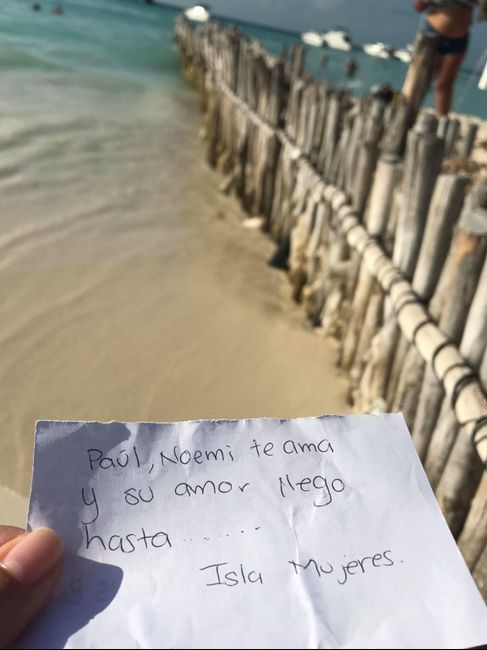 Paúl, Noemi te ama
y su amor llego
hasta ......
Isla Mujeres.